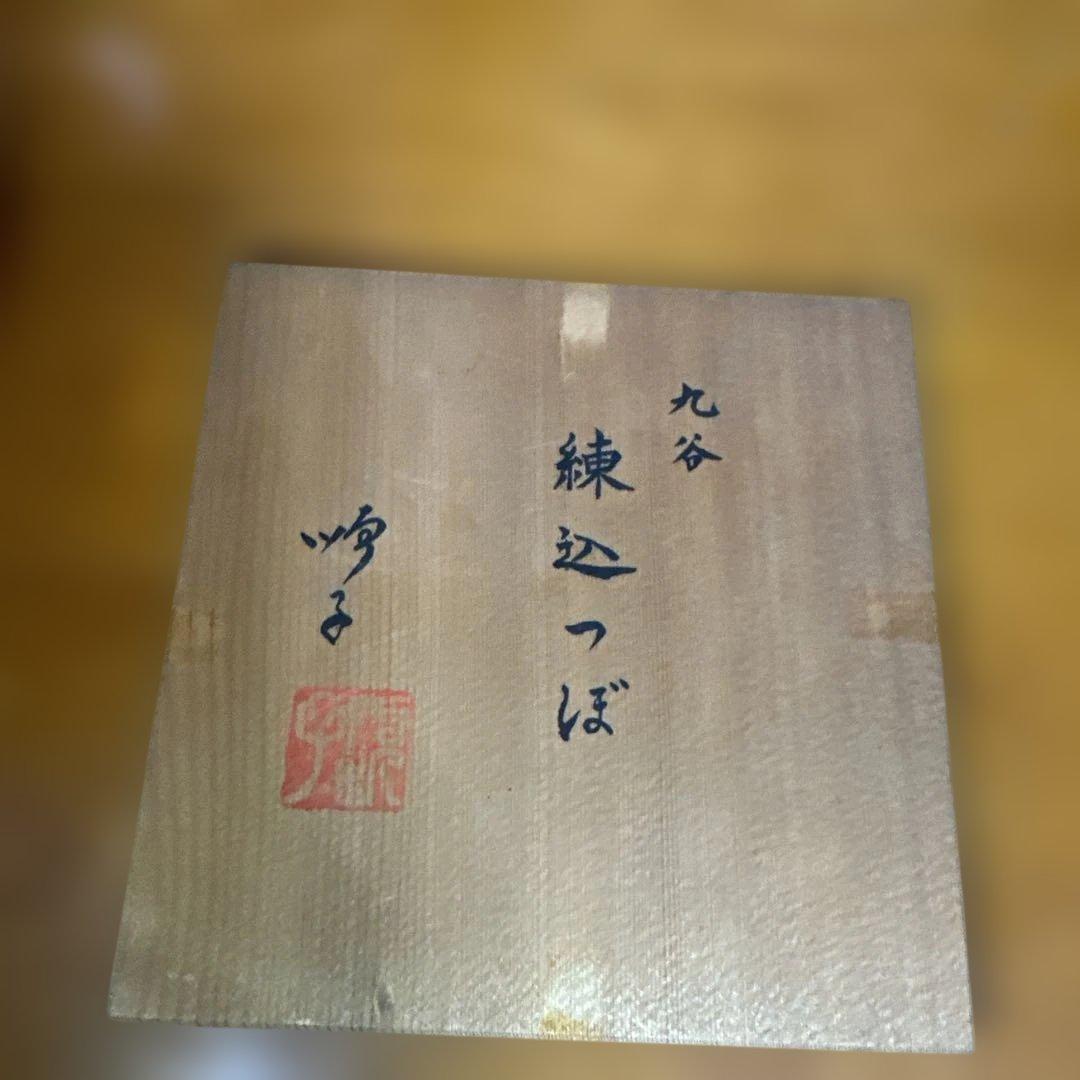 九谷
練込つぼ
順子